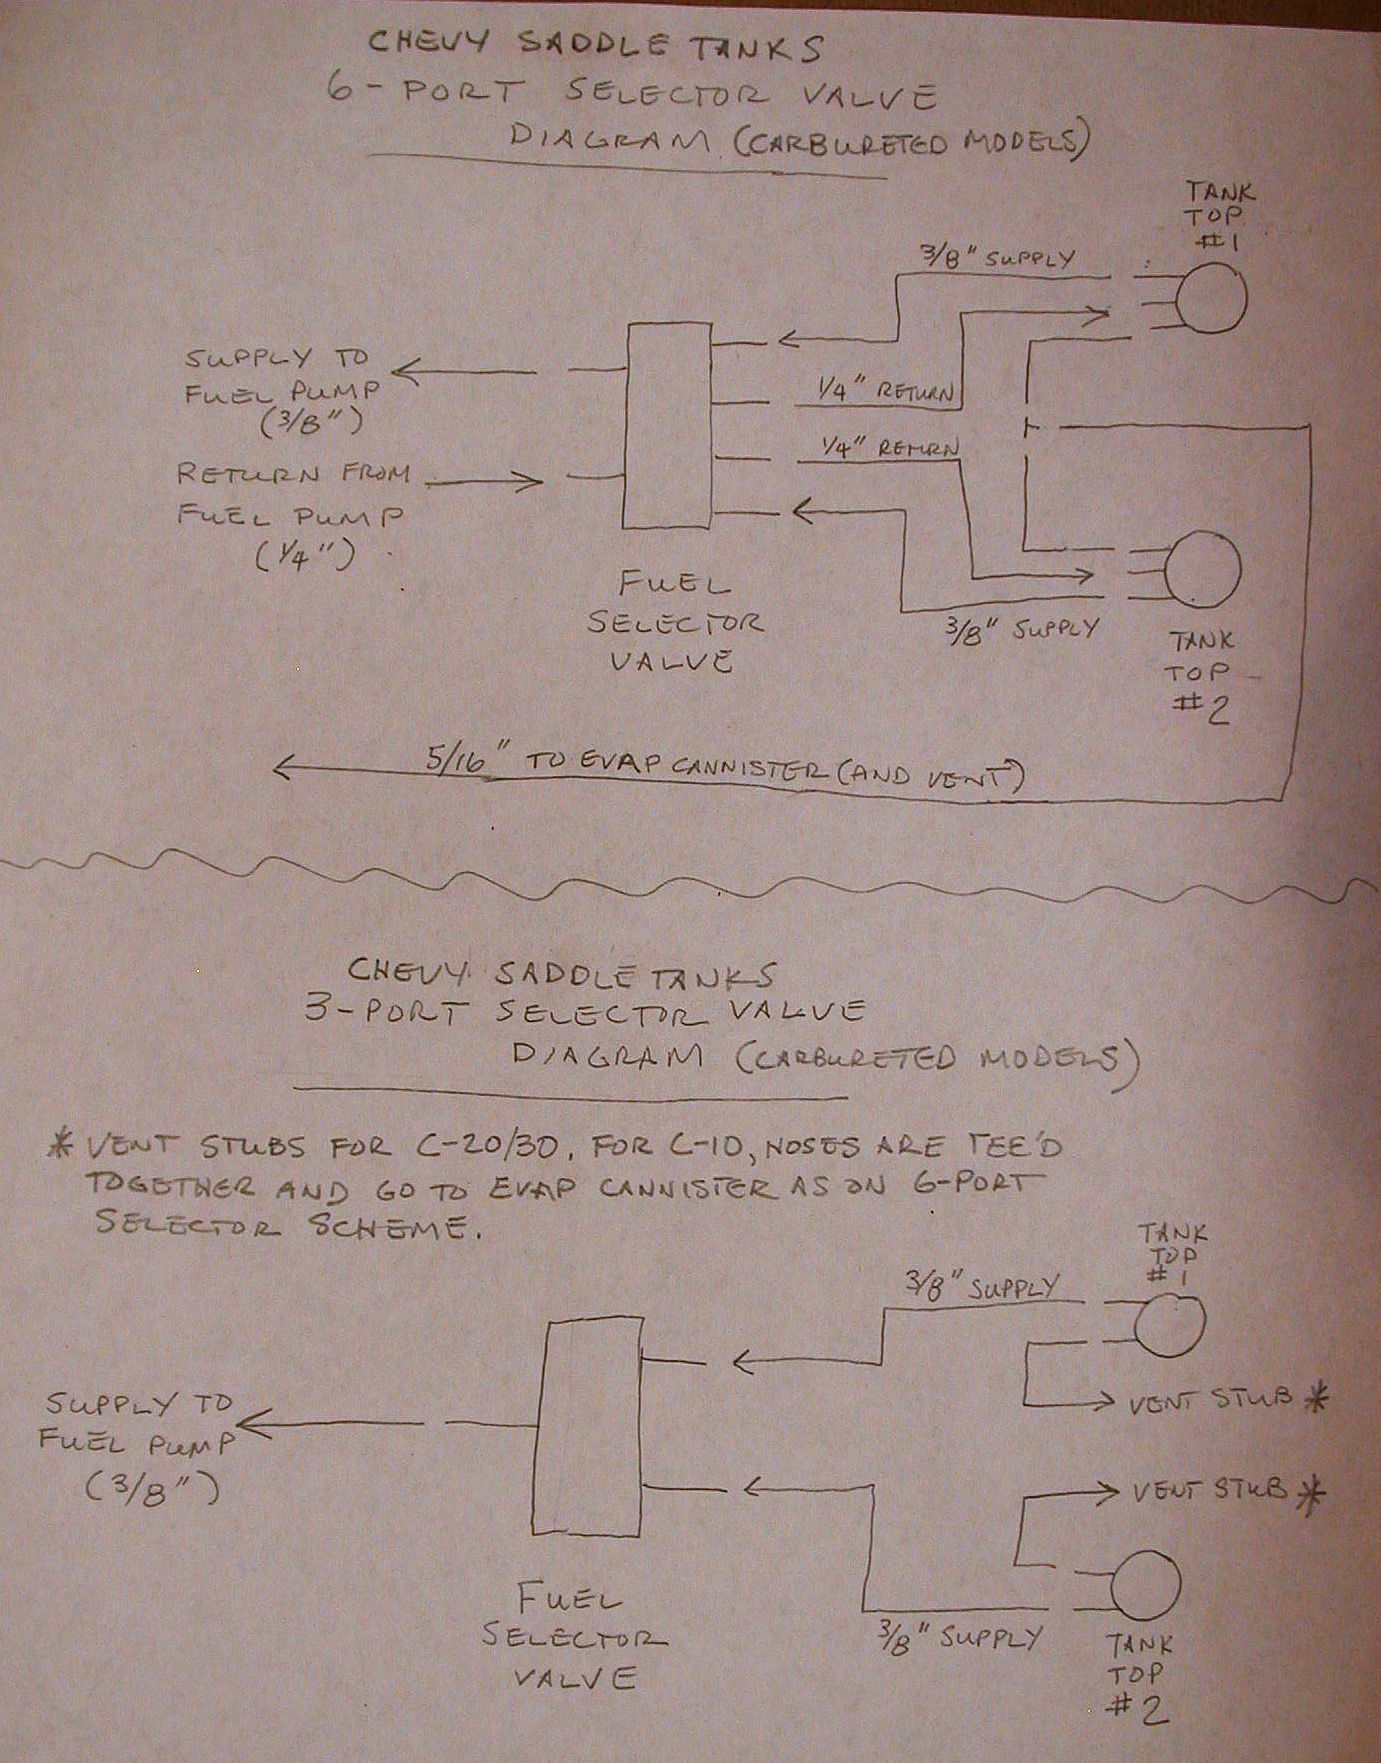 CHEVY SADDLE TANKS
6-PORT SELECTOR VALVE
DIAGRAM (CARBURETED MODELS)
TANK
TOP
#1
3/8" SUPPLY
SUPPLY TO
FUEL PUMP
(3/8")
1/4" RETURN
1/4" RETURN
RETURN FROM
FUEL PUMP
(1/4")
FUEL
SELECTOR
VALVE
3/8" SUPPLY
TANK
TOP
#2
5/16" TO EVAP CANNISTER (AND VENT)
CHEVY SADDLE TANKS
3-PORT SELECTOR VALVE
DIAGRAM (CARBURETED MODELS)
* VENT STUBS FOR C-20/30. FOR C-10, NOSES ARE TEE'D
TOGETHER AND GO TO EVAP CANNISTER AS ON 6-PORT
SELECTOR SCHEME.
TANK
TOP
#1
3/8" SUPPLY
SUPPLY TO
FUEL PUMP
(3/8")
VENT STUB *
VENT STUB *
FUEL
SELECTOR
VALVE
3/8" SUPPLY
TANK
TOP
#2